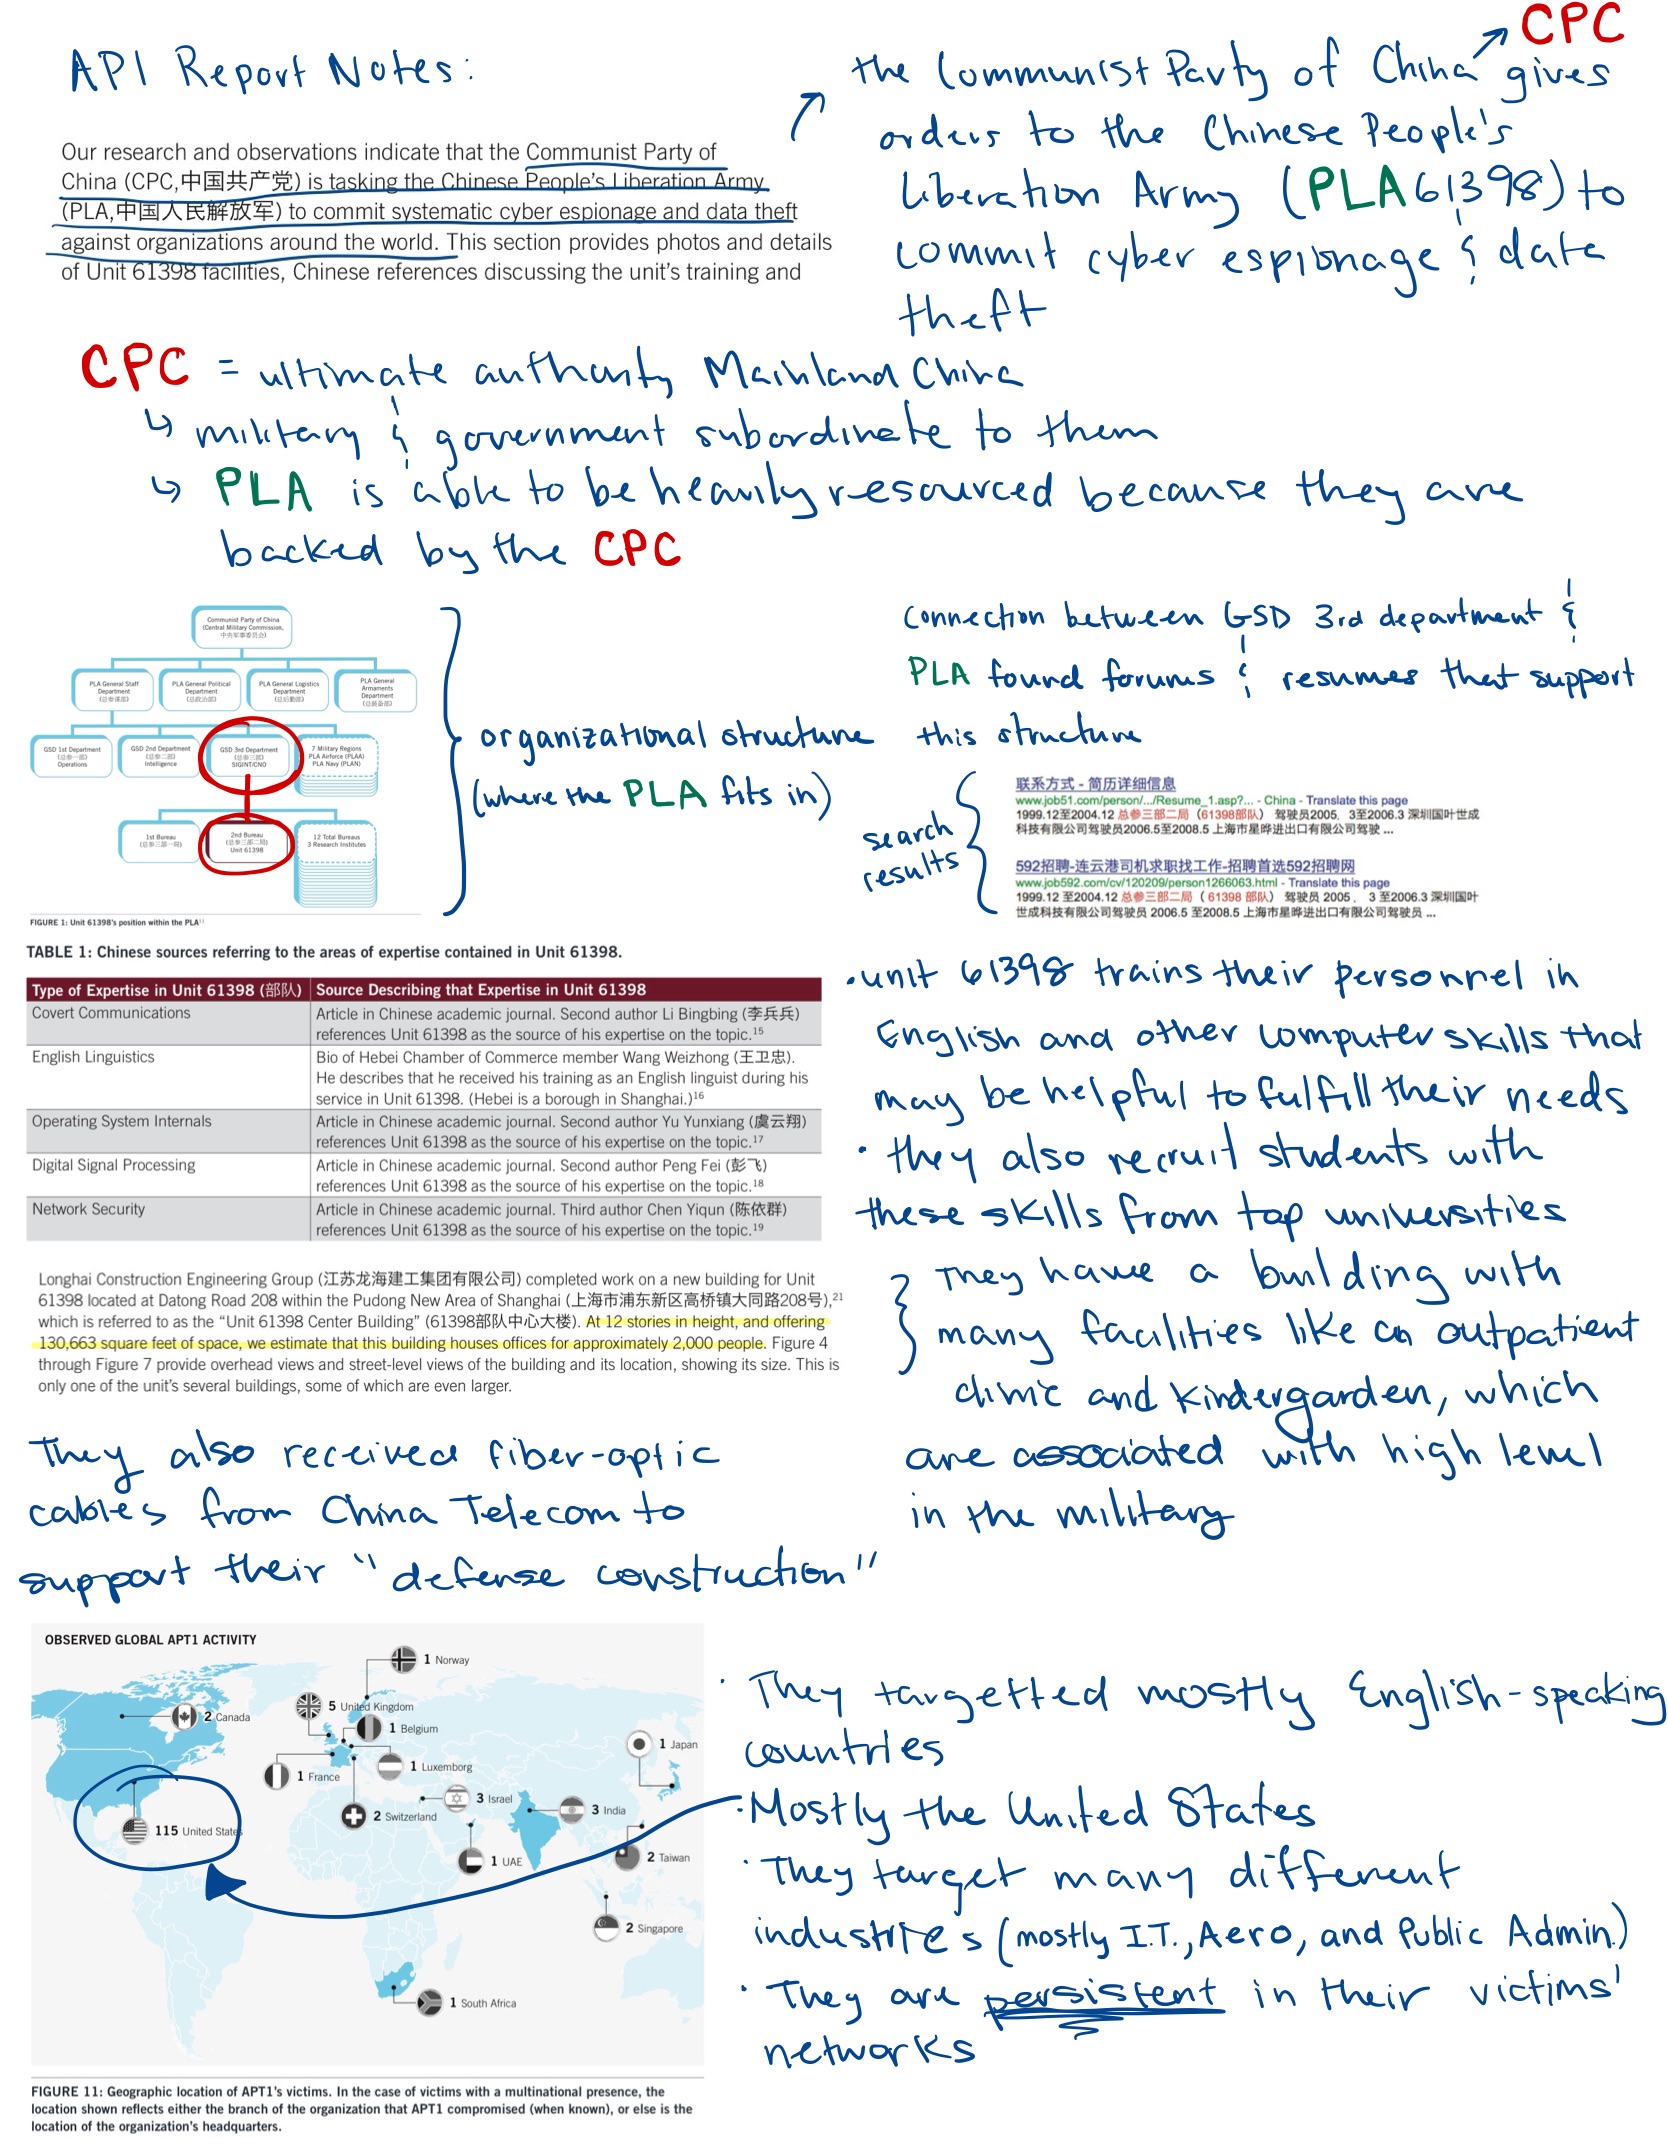 API Report Notes:
Our research and observations indicate that the Communist Party of
China (CPC,中国共产党) is tasking the Chinese People's Liberation Army
(PLA,中国人民解放军) to commit systematic cyber espionage and data theft
against organizations around the world. This section provides photos and details
of Unit 61398 facilities, Chinese references discussing the unit's training and
CPC
the Communist Party of China gives
orders to the Chinese People's
Liberation Army (PLA 61398) to
commit cyber espionage & data
theft
CPC = ultimate authority Mainland China
military & government subordinate to them
PLA is able to be heavily resourced because they are
backed by the CPC
Communist Party of China
(Central Military Commission,
中央军事委员会)
PLA General Staff
Department
(总参谋部)
PLA General Political
Department
(总政治部)
PLA General Logistics
Department
(总后勤部)
PLA General
Armaments
Department
(总装备部)
GSD 1st Department
(总参一部)
Operations
GSD 2nd Department
(总参二部)
Intelligence
GSD 3rd Department
(总参三部)
SIGINT/CNO
7 Military Regions
PLA Airforce (PLAA)
PLA Navy (PLAN)
1st Bureau
(总参三部一局)
2nd Bureau
(总参三部二局)
Unit 61398
12 Total Bureaus
3 Research Institutes
FIGURE 1: Unit 61398's position within the PLA11
organizational structure
(where the PLA fits in)
Connection between GSD 3rd department &
PLA found forums & resumes that support
this structure
search
results
联系方式 - 简历详细信息
www.job51.com/person/.../Resume_1.asp?... - China - Translate this page
1999.12至2004.12 总参三部二局（61398部队） 驾驶员2005．3至2006.3 深圳国叶世成
科技有限公司驾驶员2006.5至2008.5 上海市星晔进出口有限公司驾驶 ...
592招聘-连云港司机求职找工作-招聘首选592招聘网
www.job592.com/cv/120209/person1266063.html - Translate this page
1999.12 至2004.12 总参三部二局（ 61398 部队） 驾驶员 2005． 3 至2006.3 深圳国叶
世成科技有限公司驾驶员 2006.5 至2008.5 上海市星晔进出口有限公司驾驶员 ...
TABLE 1: Chinese sources referring to the areas of expertise contained in Unit 61398.
Type of Expertise in Unit 61398 (部队) Source Describing that Expertise in Unit 61398
Covert Communications Article in Chinese academic journal. Second author Li Bingbing (李兵兵)
references Unit 61398 as the source of his expertise on the topic.15
English Linguistics Bio of Hebei Chamber of Commerce member Wang Weizhong (王卫忠).
He describes that he received his training as an English linguist during his
service in Unit 61398. (Hebei is a borough in Shanghai.)16
Operating System Internals Article in Chinese academic journal. Second author Yu Yunxiang (虞云翔)
references Unit 61398 as the source of his expertise on the topic.17
Digital Signal Processing Article in Chinese academic journal. Second author Peng Fei (彭飞)
references Unit 61398 as the source of his expertise on the topic.18
Network Security Article in Chinese academic journal. Third author Chen Yiqun (陈依群)
references Unit 61398 as the source of his expertise on the topic.19
• unit 61398 trains their personnel in
English and other computer skills that
may be helpful to fulfill their needs
• they also recruit students with
these skills from top universities
Longhai Construction Engineering Group (江苏龙海建工集团有限公司) completed work on a new building for Unit
61398 located at Datong Road 208 within the Pudong New Area of Shanghai (上海市浦东新区高桥镇大同路208号),21
which is referred to as the "Unit 61398 Center Building" (61398部队中心大楼). At 12 stories in height, and offering
130,663 square feet of space, we estimate that this building houses offices for approximately 2,000 people. Figure 4
through Figure 7 provide overhead views and street-level views of the building and its location, showing its size. This is
only one of the unit's several buildings, some of which are even larger.
They have a building with
many facilities like an outpatient
clinic and kindergarden, which
are associated with high level
in the military
They also received fiber-optic
cables from China Telecom to
support their "defense construction"
OBSERVED GLOBAL APT1 ACTIVITY
1 Norway
5 United Kingdom
2 Canada
1 Belgium
1 Japan
1 Luxemborg
1 France
3 Israel
3 India
2 Switzerland
115 United States
1 UAE
2 Taiwan
2 Singapore
1 South Africa
FIGURE 11: Geographic location of APT1's victims. In the case of victims with a multinational presence, the
location shown reflects either the branch of the organization that APT1 compromised (when known), or else is the
location of the organization's headquarters.
• They targetted mostly English-speaking
countries
• Mostly the United States
• They target many different
industries (mostly I.T., Aero, and Public Admin.)
• They are persistent in their victims'
networks